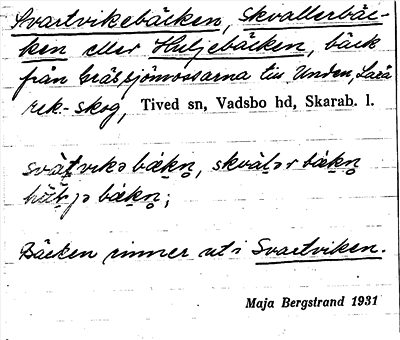 Svartvikebäcken, Skvallerbäc-
ken eller Huljebäcken, bäck
från Gråssjömossarna till Unden,
rek.-skog, Tived sn, Vadsbo hd, Skarab. l.
bäkn̥, bäkn̥
bäkn̥;
Bäcken rinner ut i Svartviken.
Maja Bergstrand 1931